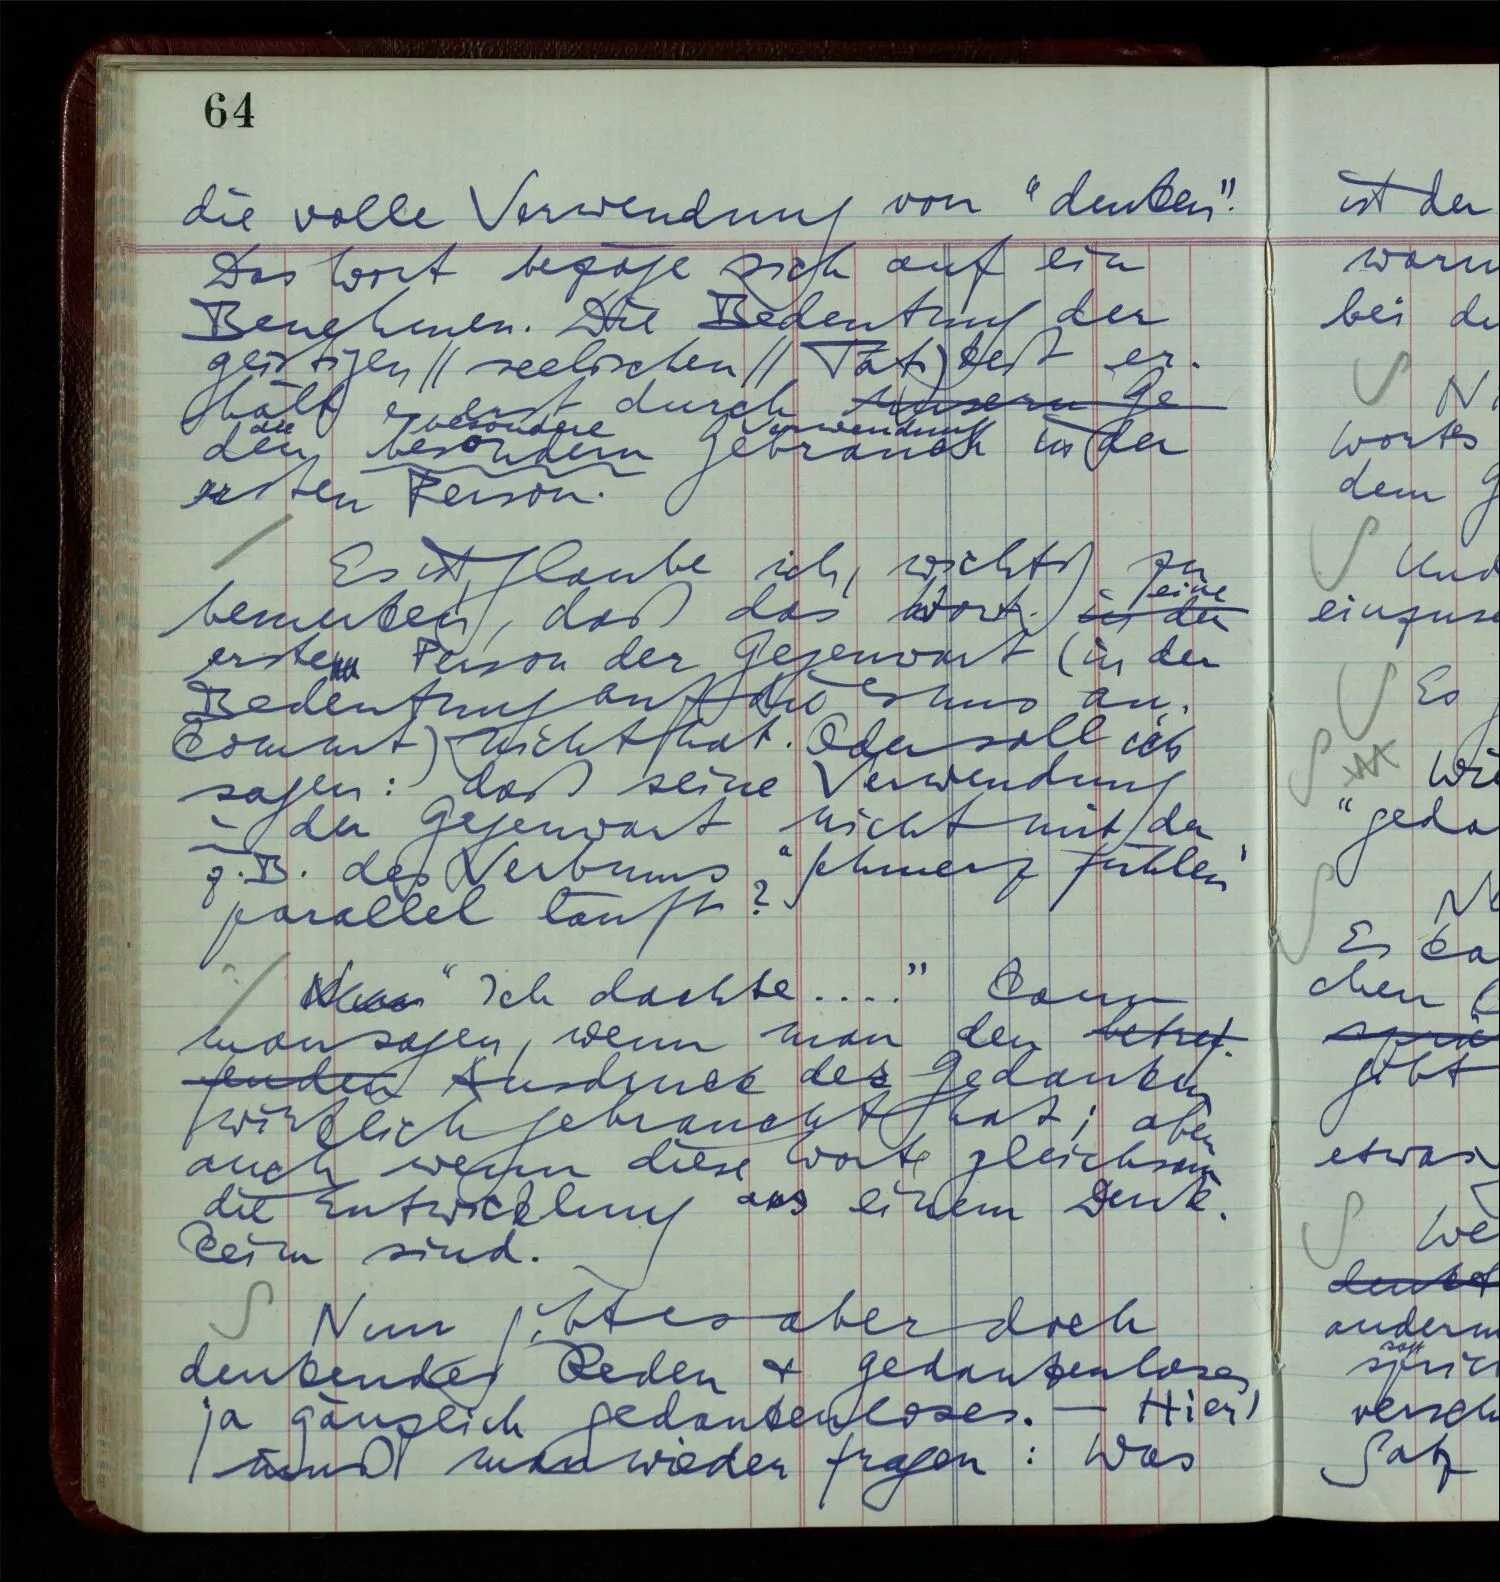 64
die volle Verwendung von "denken".
Das Wort bezöge sich auf ein
Benehmen. Die Bedeutung der
geistigen // seelischen // Tätigkeit er-
hält es erst durch unsern Ge
die besondere Verwendung
den besondern Gebrauch in der
ersten Person.
Es ist, glaube ich, wichtig zu
bemerken, daß das Wort in der eine
ersten Person der Gegenwart (in der
Bedeutung auf die es uns an-
kommt) nicht hat. Oder soll ich
sagen: daß seine Verwendung
in der Gegenwart nicht mit der
z.B. des Verbums "Schmerz fühlen"
parallel läuft?
"Ich dachte ...." kann
man sagen, wenn man den betref-
fenden Ausdruck des Gedanken
wirklich gebraucht hat; aber
auch wenn diese Worte gleichsam
die Entwicklung aus einem Denk-
keim sind.
Nun gibt es aber doch
denkendes Reden & gedankenloses
ja gänzlich gedankenloses. — Hier
muß man wieder fragen: Was
ist der
bei
Wortes
dem
Es
etwas
gibt
Satz